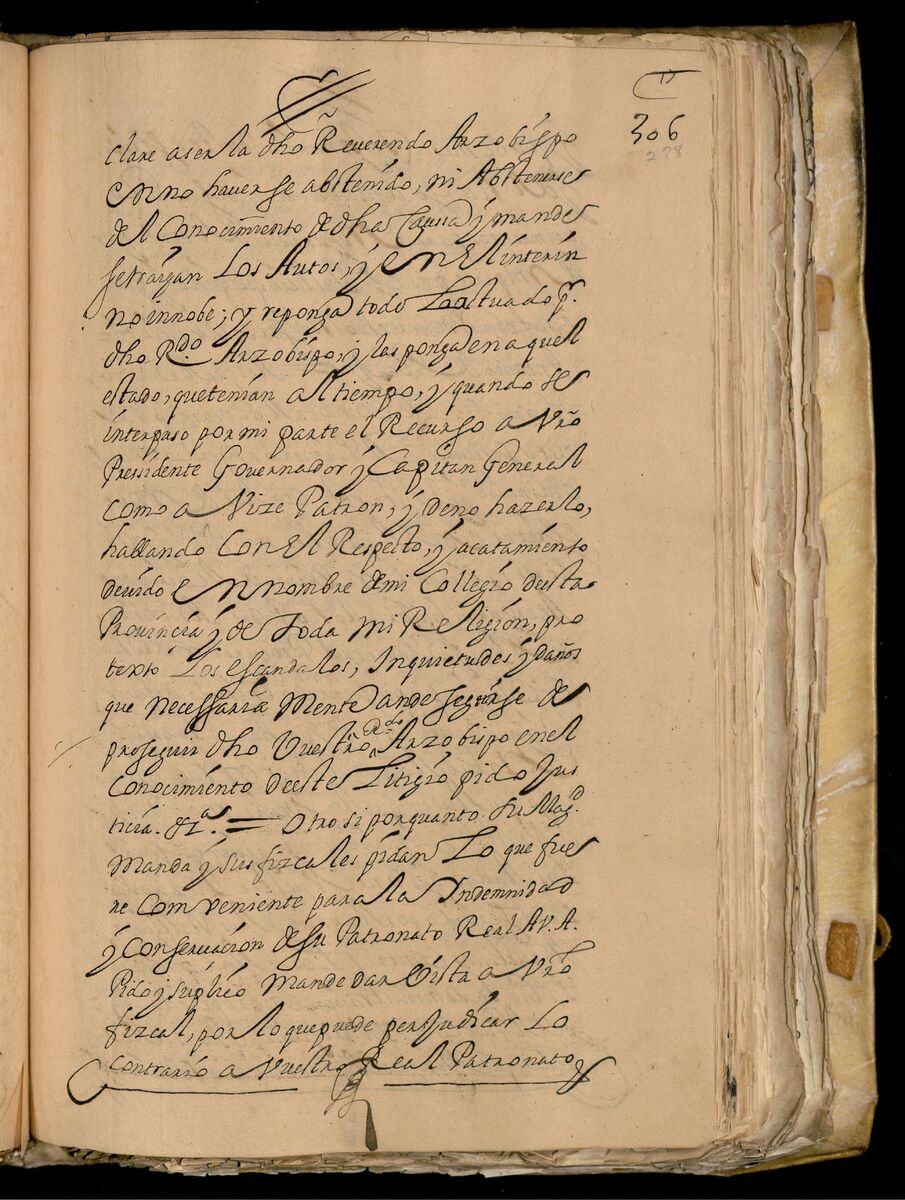 306
278
clare aser la dho Reverendo Arzobispo
en no haverse abstenido, ni Abstenerse
del Conocimiento de dha Caussa y mande
se traigan Los Autos, y en El interin
no innobe; y reponga todo Lo actuado pr.
dho Rdo. Arzobispo, y les ponga en aquel
estado, que tenian al tiempo, y quando se
interpuso por mi parte el Recurso a Vro
Pressidente Governador y Capitan General
como a Vize Patron, y de no hazerlo,
hablando Con El Respecto, y acatamiento
devido en nombre de mi Collegio de esta
Provincia y de toda mi Religion, pro
texto Los escandalos, Inquietudes y daños
que necessaria mente ande seguirse de
proseguir dho Vuestro Rdo. Arzobispo en el
Conocimiento de este Litigio pido Jus
ticia. &as. = Otro si por quanto Su Magd.
Manda y sus fizcales pidan Lo que fue
re comveniente para la Indemnidad
y Conservacion de su Patronato Real A V. A.
Pido y suplico Mande dar Vista a Vro
fizcal, por lo que puede perjudicar Lo
Contrario a Vuestro Real Patronato